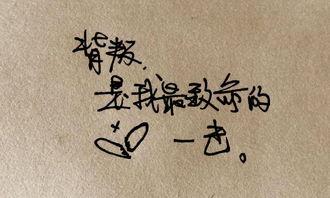 背叛.
是我最致命的
一击。